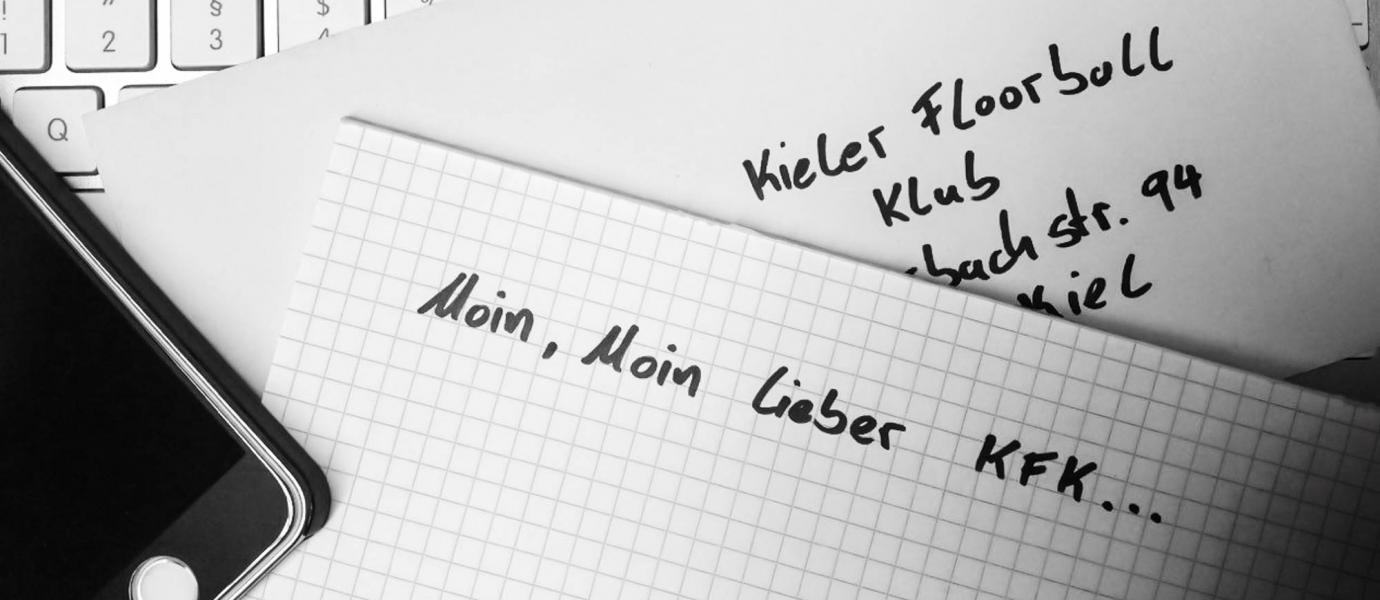 !
1
"
2
§
3
$
4
Q
Kieler Floorball
Klub
sbach str. 94
Kiel
Moin, Moin lieber KFK...